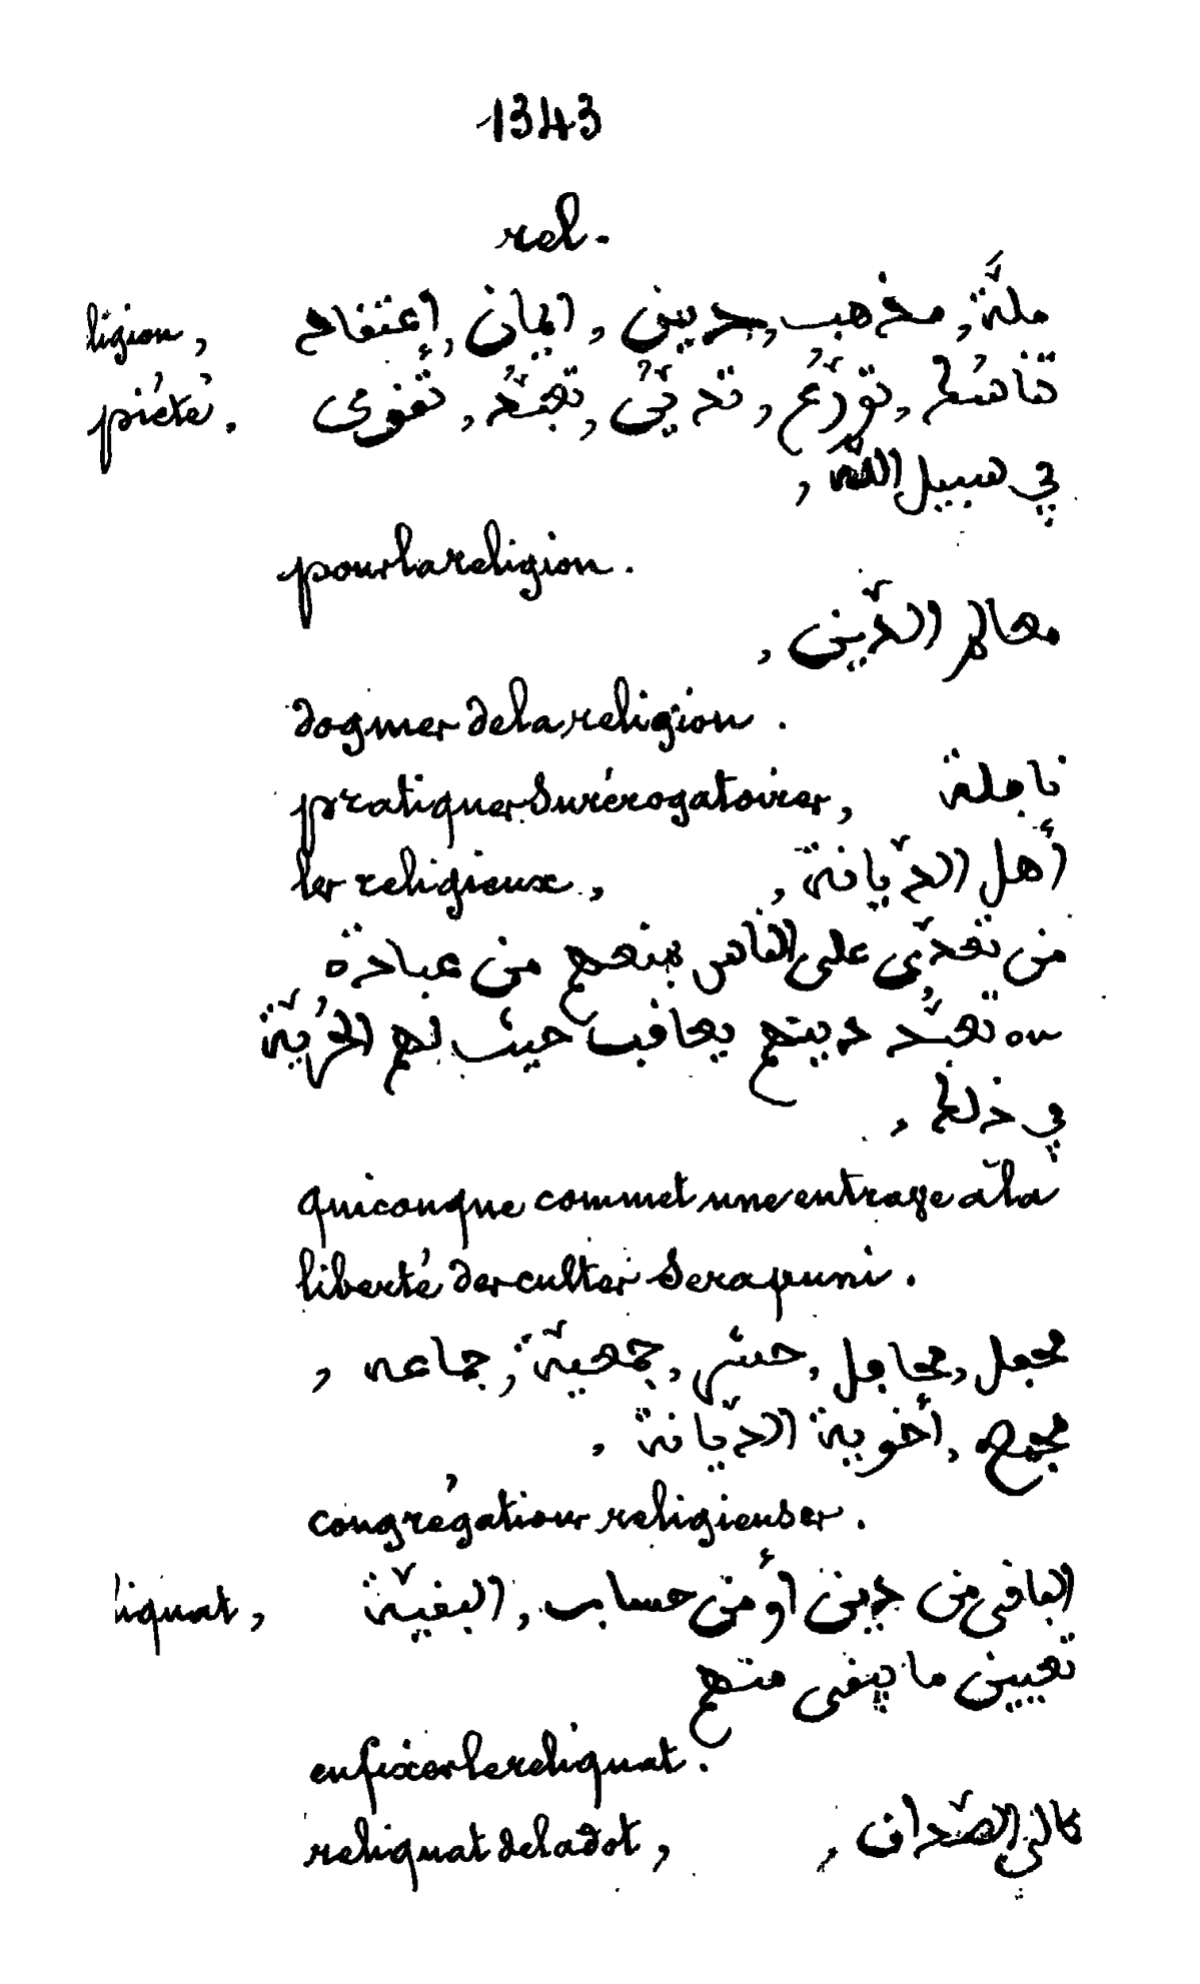 1343
rel.
ligion, ملّة, مذهب, دين, ايمان, إعتقاد
piété. تناسُك, تورُّع, تديُّن, تعبُّد, تقوى
في سبيل اللّه,
pour la religion.
معالم الدّين,
dogmes de la religion.
pratiques surérogatoires, نافلة
les religieux, أهل الدّيانة,
من تعدّى على الناس بمنعهم من عبادة
ou تعبُّد دينهم يعاقب حيث لهم الحُرّيّة
في ذلك,
quiconque commet une entrave à la
liberté des cultes sera puni.
محفل, محافل, حشر, جمعيّة, جماعه,
مجمع, أخوية الدّيانة,
congrégations religieuses.
liquat, الباقي من دين أو من حساب, البقيّة
تعيين ما يبقى منهم
en fixer le reliquat.
reliquat de la dot, كالئ الصّداق,